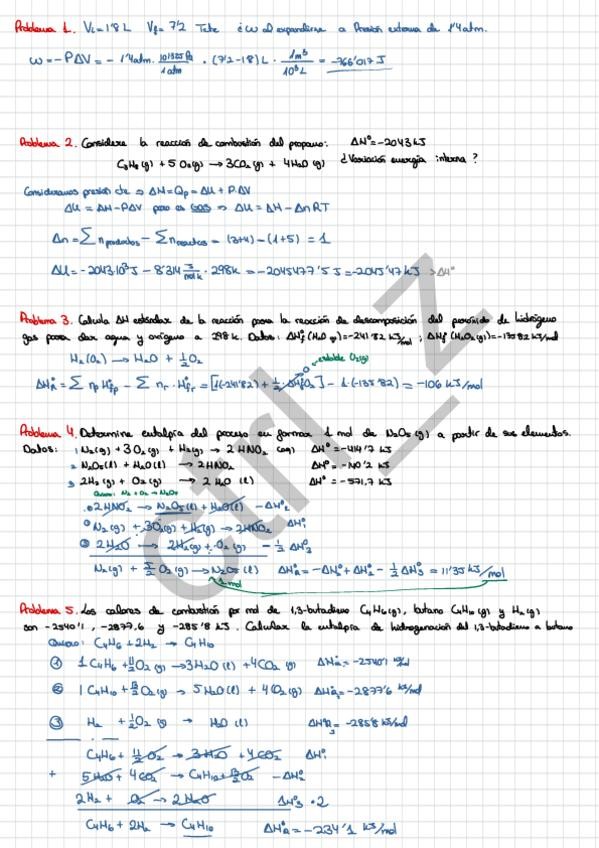 Problema 1. Vi=1'8 L Vf=7'2 T cte ¿w al expandirse a Presión externa de 1'4 atm.
w = -PΔV = -1'4 atm. 101325 Pa / 1 atm · (7'2-1'8) L · 1 m³ / 10³ L = -766'017 J
Problema 2. Considere la reacción de combustión del propano: ΔH° = -2043 kJ
C₃H₈(g) + 5 O₂(g) → 3CO₂(g) + 4H₂O(g) ¿Variación energía interna?
Consideramos presión cte ⇒ ΔH = Qp = ΔU + PΔV
ΔU = ΔH - PΔV pero es gas ⇒ ΔU = ΔH - ΔnRT
Δn = Σ n productos - Σ n reactivos = (3+4) - (1+5) = 1
ΔU = -2043·10³ J - 8'314 J/mol K · 298K = -2045477'5 J = -2045'47 kJ >ΔH°
Problema 3. Calcula ΔH estándar de la reacción para la reacción de descomposición del peróxido de hidrógeno
gas para dar agua y oxígeno a 298 K. Datos: ΔHf°(H₂O g) = -241'82 kJ/mol ; ΔHf°(H₂O₂(g)) = -135'82 kJ/mol
H₂(O₂) → H₂O + ½O₂ estable O₂(g)
ΔH°R = Σ np H°fp - Σ nr · H°fr = [1(-241'82) + ½ ΔH°fO₂] - 1·(-135'82) = -106 kJ/mol
Problema 4. Determine entalpía del proceso en formar 1 mol de N₂O₅(g) a partir de sus elementos.
Datos: 1 N₂(g) + 3O₂(g) + H₂(g) → 2 HNO₃ (aq) ΔH° = -414'7 kJ
2 N₂O₅(l) + H₂O(l) → 2HNO₃ ΔH° = -140'2 kJ
3 2H₂(g) + O₂(g) → 2 H₂O (l) ΔH° = -571,7 kJ
Quiero: N₂ + O₂ → N₂O₅
2HNO₃ → N₂O₅(l) + H₂O(l) -ΔH°₂
N₂(g) + 3O₂(g) + H₂(g) → 2HNO₃ ΔH°₁
2H₂O → 2H₂(g) + O₂(g) -½ ΔH°₃
N₂(g) + 5/2 O₂(g) → N₂O₅(l) ΔH°R = -ΔH°₂ + ΔH°₁ - ½ ΔH°₃ = 11'35 kJ/mol
1 mol
Problema 5. Los calores de combustión por mol de 1,3-butadieno C₄H₆(g), butano C₄H₁₀(g) y H₂(g)
son -2540'1, -2877.6 y -285'8 kJ. Calcular la entalpía de hidrogenación del 1,3-butadieno a butano
Quiero: C₄H₆ + 2H₂ → C₄H₁₀
① 1 C₄H₆ + 11/2 O₂(g) → 3H₂O(l) + 4CO₂(g) ΔH°R₁ = -2540'1 kJ/mol
② 1 C₄H₁₀ + 13/2 O₂(g) → 5H₂O(l) + 4CO₂(g) ΔH°R₂ = -2877'6 kJ/mol
③ H₂ + ½O₂(g) → H₂O(l) ΔH°R₃ = -285'8 kJ/mol
C₄H₆ + 11/2 O₂ → 3H₂O + 4CO₂ ΔH°₁
+ 5H₂O + 4CO₂ → C₄H₁₀ + 13/2 O₂ -ΔH°₂
2H₂ + O₂ → 2H₂O ΔH°₃ · 2
C₄H₆ + 2H₂ → C₄H₁₀ ΔH°R = -234'1 kJ/mol
Ctrl_Z